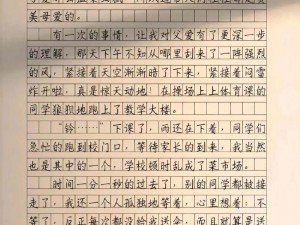 美母爱的。
有一次的事情，让我对父爱有了更深一步
的理解，那天下午不知从哪里刮来了一阵强烈
的风，紧接着天空渐渐暗了下来，紧接着闷雷
炸开啦，真是惊天动地，在操场上上体育课的
同学狼狈地跑上了教学大楼。
“铃……”下课了，雨还在下着，同学们
急忙的跑到校门口，等待家长的到来，我当然
也是其中的一个，学校顿时乱成了菜市场。
时间一分一秒的过去了，别的同学都被接
走了，我还一个人孤独地等着，心里想着：不
等了，反正每次都没给我送伞，而且就算是送